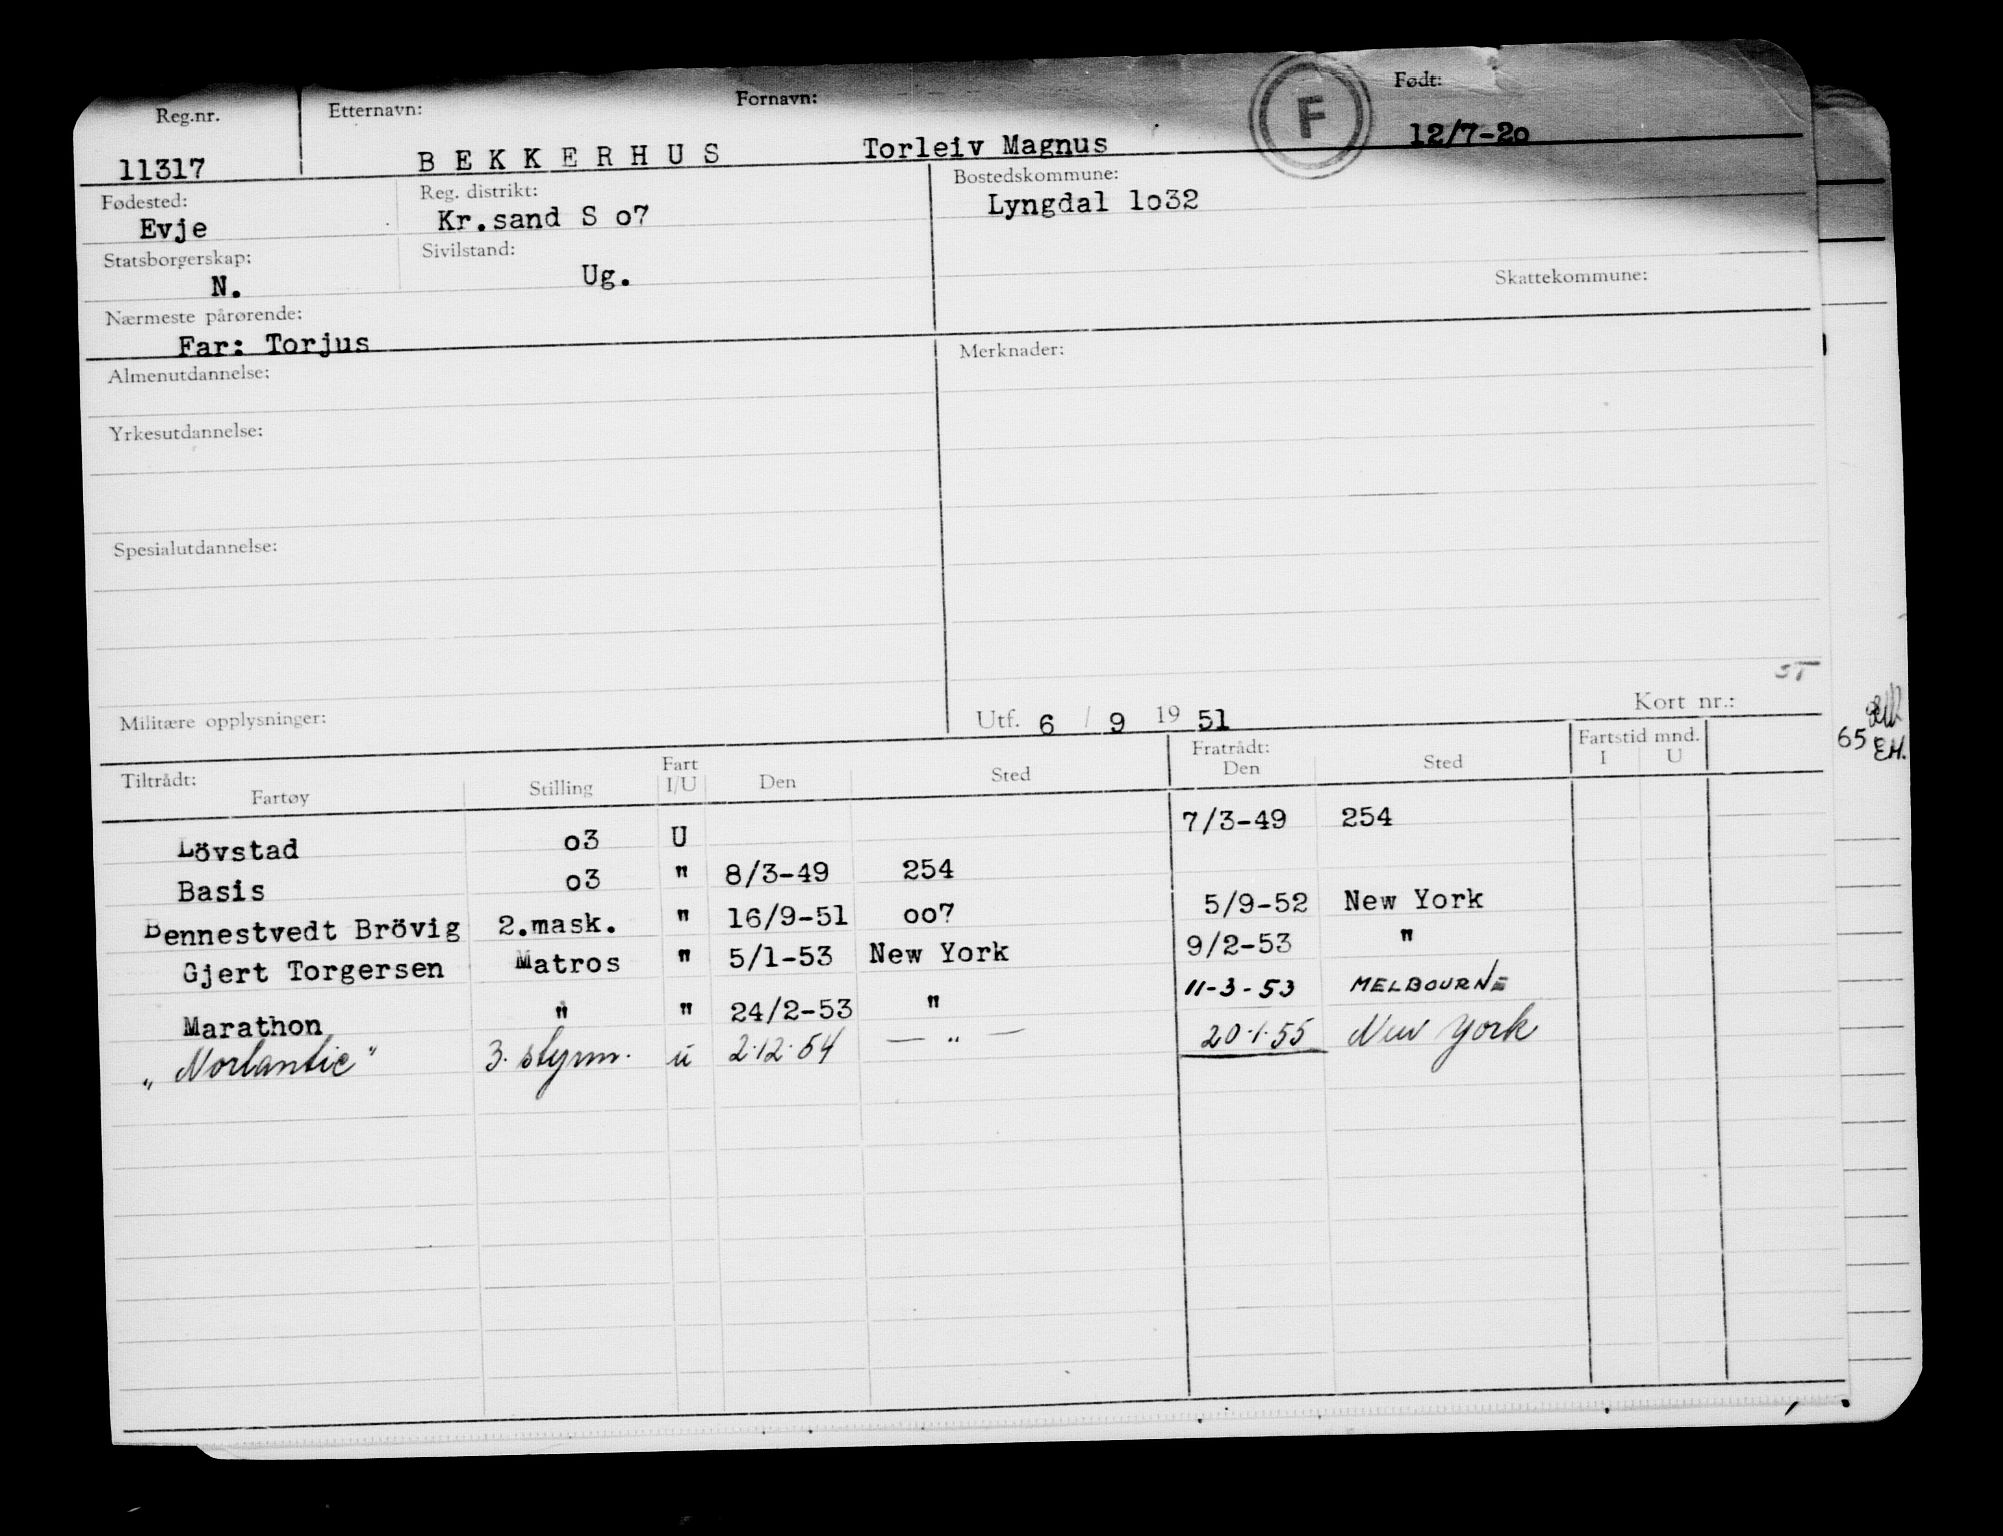 Reg.nr. Etternavn: Fornavn: F Født:
11317 BEKKERHUS Torleiv Magnus 12/7-2o
Fødested: Reg. distrikt: Bostedskommune:
Evje Kr.sand S o7 Lyngdal 1o32
Statsborgerskap: Sivilstand:
N. Ug. Skattekommune:
Nærmeste pårørende:
Far: Torjus
Almenutdannelse: Merknader:
Yrkesutdannelse:
Spesialutdannelse:
ST
Militære opplysninger: Utf. 6 / 9 19 51 Kort nr.:
65 E.H.
Tiltrådt: Fart Fratrådt: Fartstid mnd.
Fartøy Stilling I/U Den Sted Den Sted I U
Lövstad o3 U 7/3-49 254
Basis o3 " 8/3-49 254
Bennestvedt Brövig 2.mask. " 16/9-51 oo7 5/9-52 New York
Gjert Torgersen Matros " 5/1-53 New York 9/2-53 "
Marathon " " 24/2-53 " 11-3-53 MELBOURNE
"Norlantic" 3. styrm. u 2.12.54 — " — 20.1.55 New York